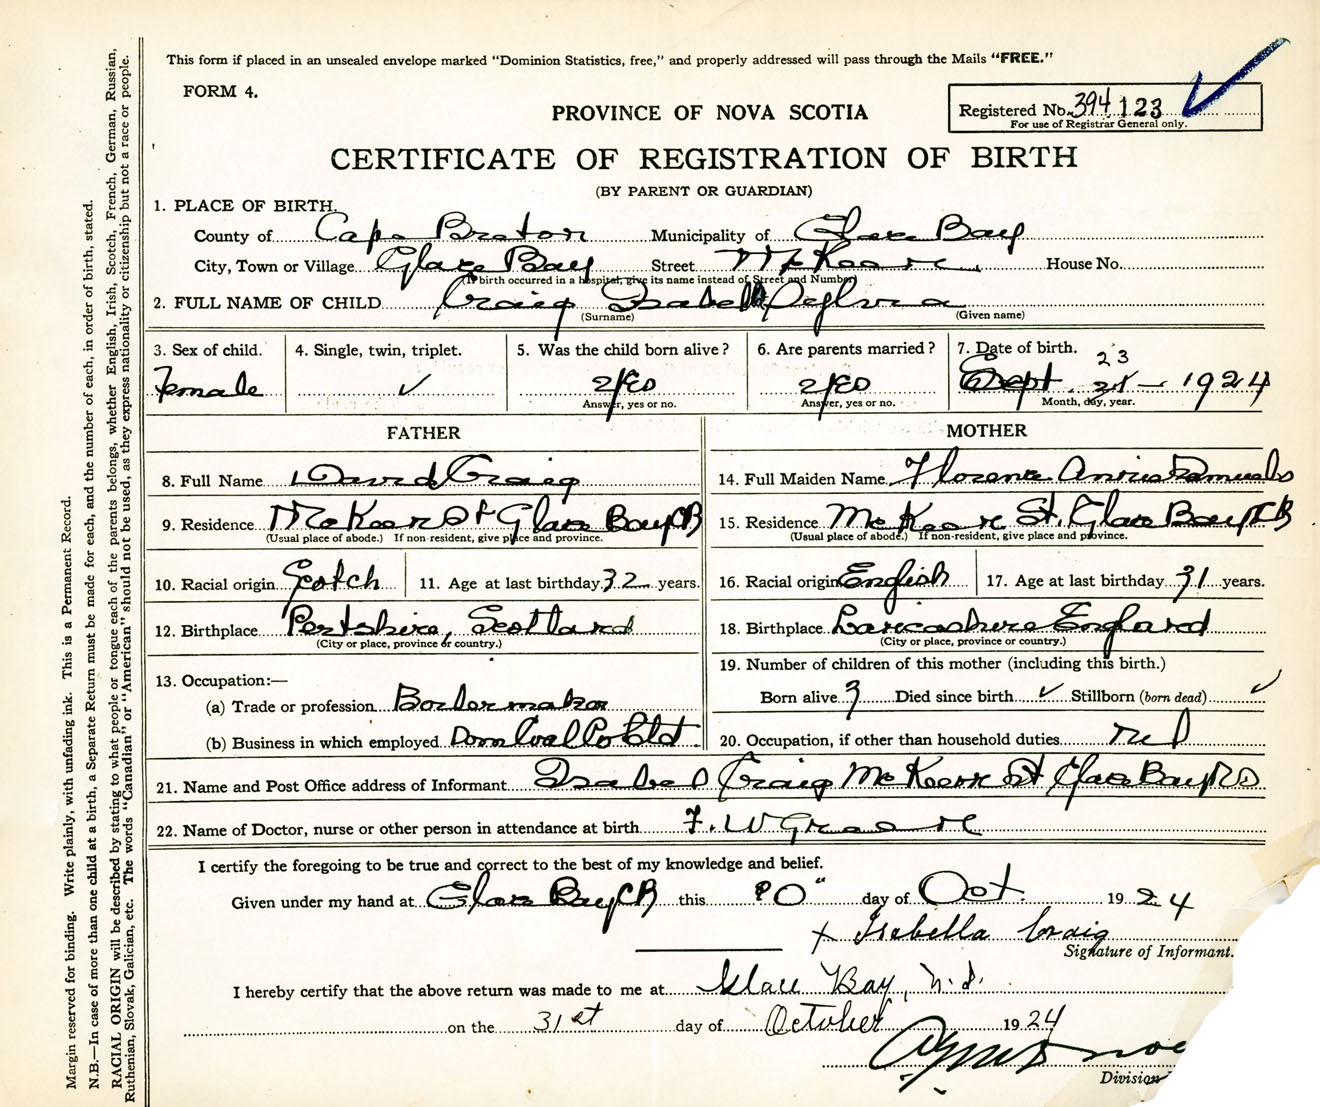 This form if placed in an unsealed envelope marked "Dominion Statistics, free," and properly addressed will pass through the Mails "FREE."
FORM 4.
PROVINCE OF NOVA SCOTIA
Registered No. 394,123
For use of Registrar General only.
CERTIFICATE OF REGISTRATION OF BIRTH
(BY PARENT OR GUARDIAN)
1. PLACE OF BIRTH.
County of Cape Breton Municipality of Glace Bay
City, Town or Village Glace Bay Street McKeen House No.
(If birth occurred in a hospital, give its name instead of Street and Number)
2. FULL NAME OF CHILD Craig Isabell
(Surname) (Given name)
3. Sex of child. 4. Single, twin, triplet. 5. Was the child born alive? 6. Are parents married? 7. Date of birth.
23
Female ✓ yes yes Sept. 1924
Answer, yes or no. Answer, yes or no. Month, day, year.
FATHER MOTHER
8. Full Name David Craig 14. Full Maiden Name Florence Annie Samuels
9. Residence McKeen St Glace Bay CB 15. Residence McKeen St. Glace Bay CB
(Usual place of abode.) If non-resident, give place and province. (Usual place of abode.) If non-resident, give place and province.
10. Racial origin Scotch 11. Age at last birthday 32 years. 16. Racial origin English 17. Age at last birthday 31 years.
12. Birthplace Pertshire, Scotland 18. Birthplace Lancashire England
(City or place, province or country.) (City or place, province or country.)
13. Occupation:— 19. Number of children of this mother (including this birth.)
(a) Trade or profession Boilermaker Born alive 3 Died since birth ✓ Stillborn (born dead) ✓
(b) Business in which employed Dom Coal Co Ltd 20. Occupation, if other than household duties
21. Name and Post Office address of Informant Isabel Craig McKeen St Glace Bay NS
22. Name of Doctor, nurse or other person in attendance at birth F. W Green
I certify the foregoing to be true and correct to the best of my knowledge and belief.
Given under my hand at Glace Bay CB this day of Oct. 1924
x Isabella Craig
Signature of Informant.
I hereby certify that the above return was made to me at Glace Bay, N.S.
on the 31st day of October 1924
Division
Margin reserved for binding. Write plainly, with unfading ink. This is a Permanent Record.
N.B.—In case of more than one child at a birth, a Separate Return must be made for each, and the number of each, in order of birth, stated.
RACIAL ORIGIN will be described by stating to what people or tongue each of the parents belongs, whether English, Irish, Scotch, French, German, Russian,
Ruthenian, Slovak, Galician, etc. The words "Canadian" or "American" should not be used, as they express nationality or citizenship but not a race or people.